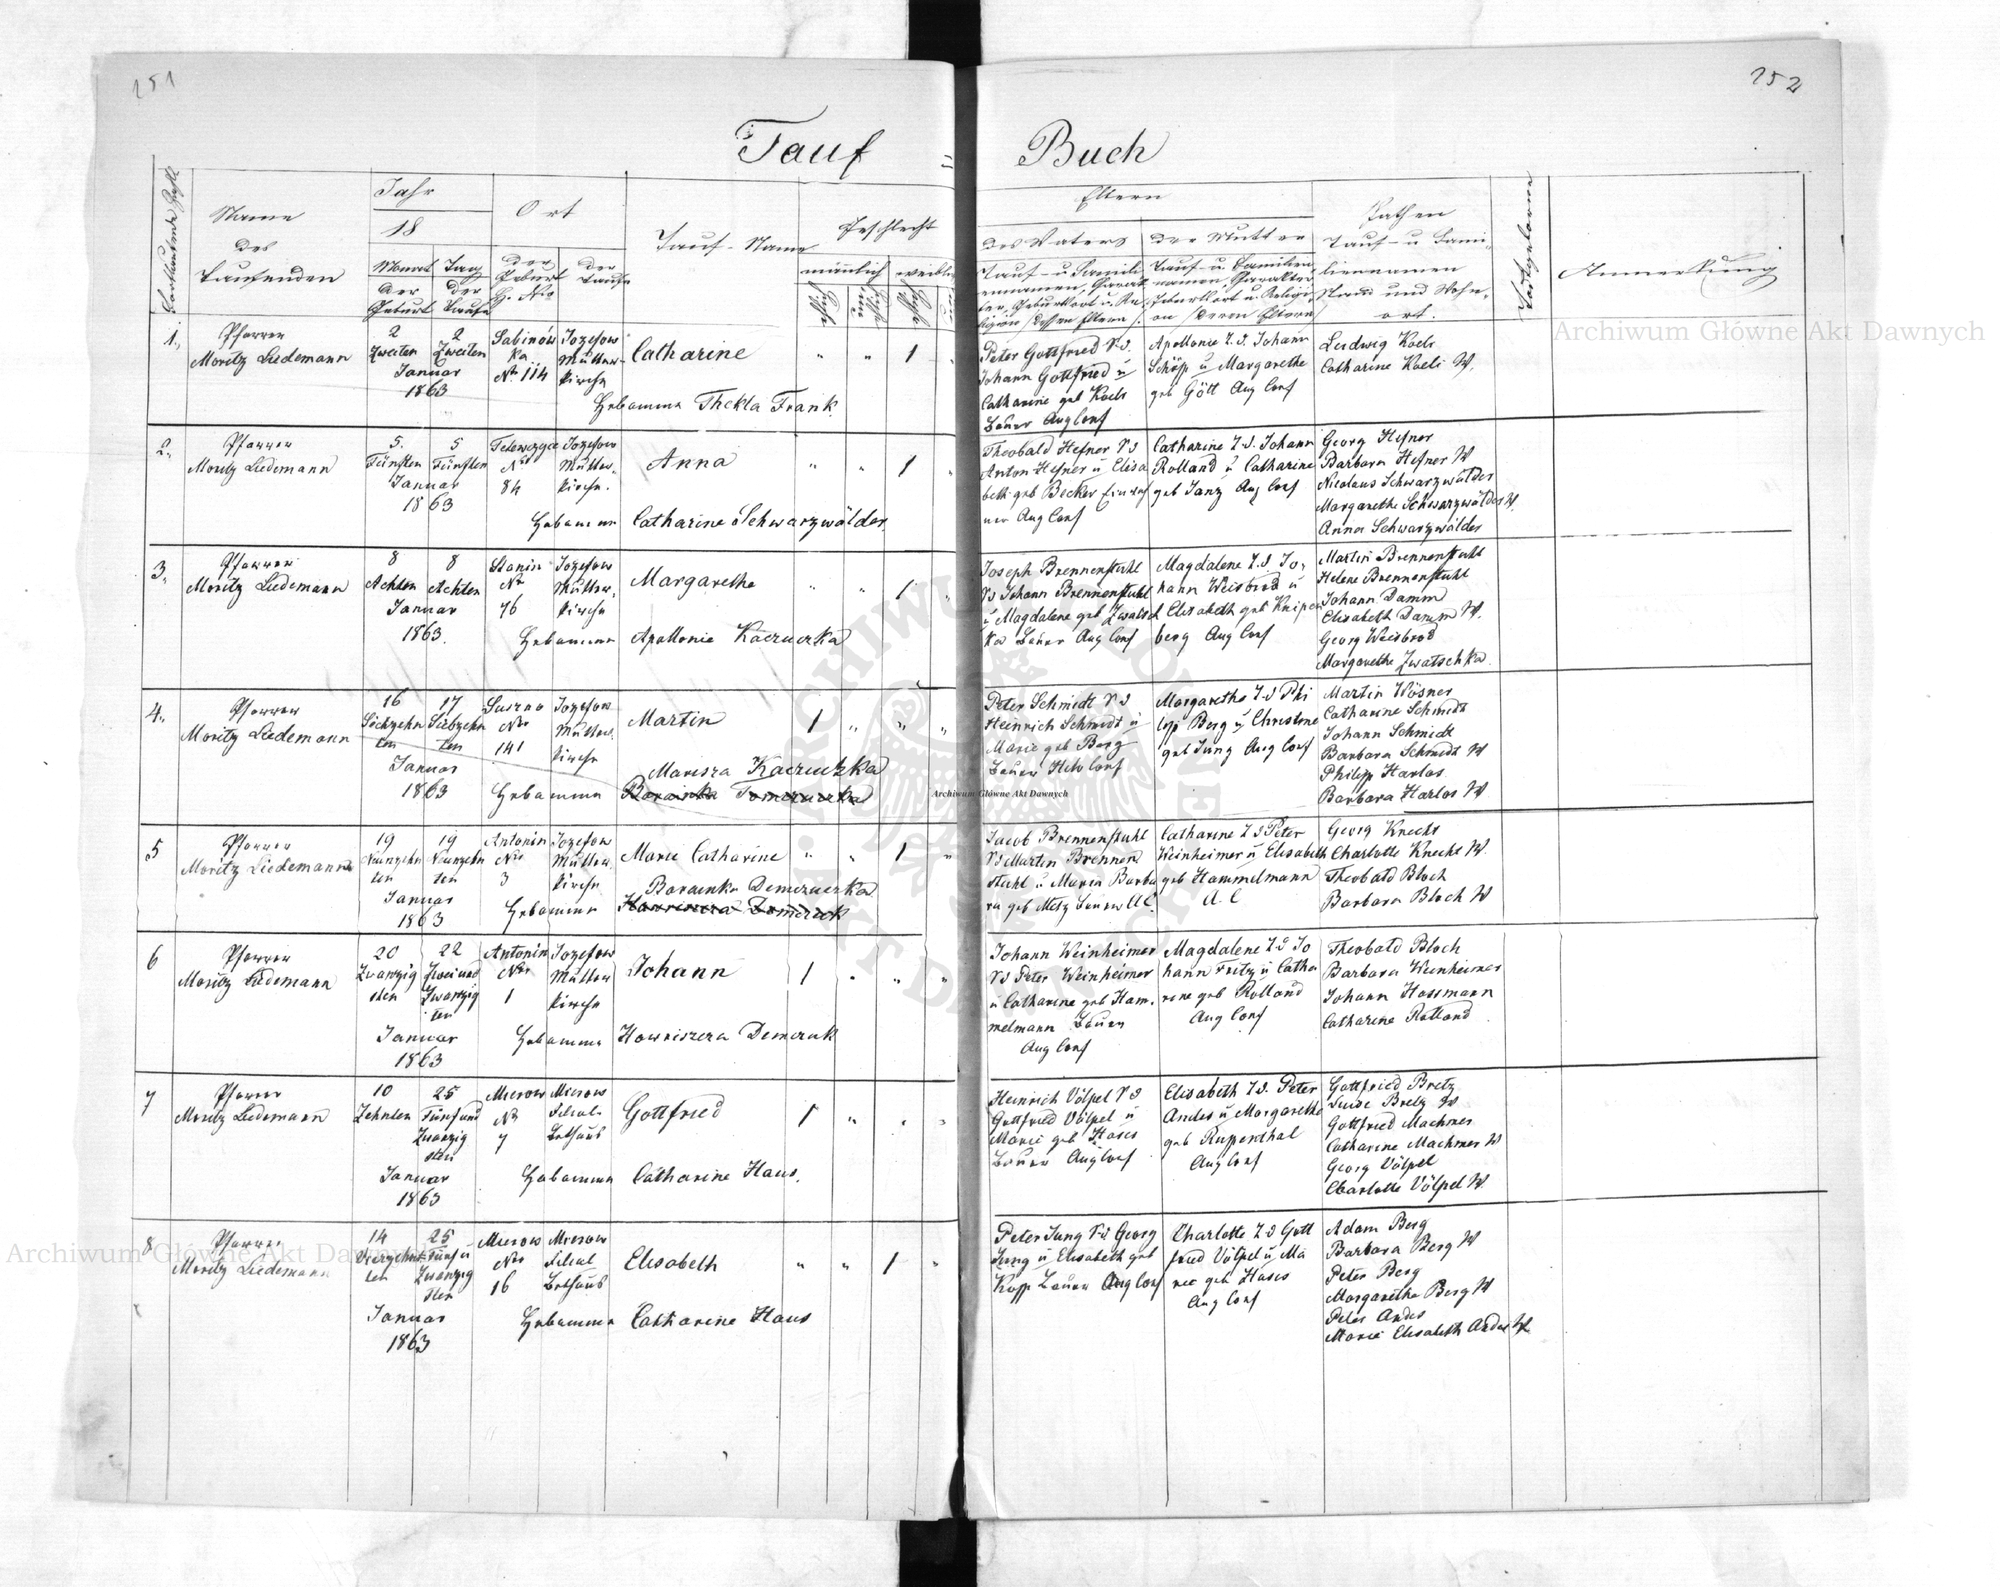 251
252
Tauf = Buch
Fortlaufende Zahl
Name
des
Taufenden
Jahr
18
Monat
der
Geburt
Tag
der
Taufe
Ort
der
Geburt
H. Nro
der
Taufe
Tauf-Name
Geschlecht
männlich
weiblich
Eltern
des Vaters
der Mutter
Tauf- u Famili
ennamen, Charak
ter, Geburtsort u. Re
ligion dessen Eltern
Tauf- u. Familien
namen, Charakter
Geburtsort u Religi
on deren Eltern
Pathen
Tauf- u Fami-
liennamen
Stand und Wohn-
ort.
Todtgeborene
Anmerkung
1.
Pfarrer
Moritz Liedemann
2
Zweiten
2
Zweiten
Januar
1863
Sabinów
ka
Nro 114
Jozefow
Mutter-
kirche
Catharine
" " 1 "
Hebamme Thekla Frank
Peter Gottfried V.S.
Johann Gottfried u
Catharine geb Koeli
Bauer Aug Conf
Apollonie T.d. Johann
Schöpp u Margarethe
geb Gött Aug Conf
Ludwig Koeli
Catharine Koeli W.
2.
Pfarrer
Moritz Liedemann
5.
Fünften
5
Fünften
Januar
1863
Nro
84
Jozefow
Mutter-
kirche.
Anna
" " 1 "
Hebamme Catharine Schwarzwälder
Theobald Hefner V S
Anton Hefner u Elisa
beth geb Becker
ner Aug Conf
Catharine T.d. Johann
Rolland u Catharine
geb Janz Aug Conf
Georg Hefner
Barbara Hefner W
Nicolaus Schwarzwälder
Margarethe Schwarzwälder W.
Anna Schwarzwälder
3.
Pfarrer
Moritz Liedemann
8
Achten
8
Achten
Januar
1863.
Stanin
Nro
76
Jozefow
Mutter-
kirche
Margarethe
" " 1 "
Hebamme Apollonie Kaczuczka
Joseph Brennenstuhl
V S Johann Brennenstuhl
u Magdalene geb Zwatsch
ka Bauer Aug Conf
Magdalene T.d. Jo-
hann Weisbrod u
Elisabeth geb Knipen
berg Aug Conf
Martin Brennenstuhl
Helene Brennenstuhl
Johann Damm
Elisabeth Damm W.
Georg Weisbrod
Margarethe Zwatschka.
4.
Pfarrer
Moritz Liedemann
16
Sechzehn
ten
17
Siebzehn
ten
Januar
1863
Suszno
Nro
141
Jozefow
Mutter-
kirche
Martin
1 " " "
Marisza Kaczuczka
Hebamme
Peter Schmidt V S
Heinrich Schmidt u
Marie geb Berg
Bauer Helv Conf
Margaretha T.d Phi
lipp Berg u Christine
geb Jung Aug Conf
Martin Wösner
Catharine Schmidt
Johann Schmidt
Barbara Schmidt W
Philipp Harlos
Barbara Harlos W
5
Pfarrer
Moritz Liedemann
19
Neunzehn
ten
19
Neunzehn
ten
Januar
1863
Antonin
Nro
3
Jozefow
Mutter
kirche
Marie Catharine
" " 1 "
Baraenka Demczuczka
Hebamme
Jacob Brennenstuhl
V S Martin Brennen
stuhl u Maria Barba
ra geb Metz Bauer A C.
Catharine T d Peter
Weinheimer u Elisabeth
geb Hammelmann
A. C
Georg Knecht
Charlotte Knecht W.
Theobald Bloch
Barbara Bloch W
6
Pfarrer
Moritz Liedemann
20
Zwanzig
sten
22
Zwei und
Zwanzig
ten
Januar
1863
Antonin
Nro
1
Jozefow
Mutter
kirche
Johann
1 " " "
Hebamme Hawriszera Demczuk
Johann Weinheimer
V S Peter Weinheimer
u Catharine geb Ham-
melmann Bauer
Aug Conf
Magdalene T d Jo
hann Fritz u Catha
rine geb Rolland
Aug Conf
Theobald Bloch
Barbara Weinheimer
Johann Hossmann
Catharine Rolland
7
Pfarrer
Moritz Liedemann
10
Zehnten
25
Fünfund
Zwanzig
sten
Januar
1863
Mierow
Nro
7
Mierow
Filial
Bethaus
Gottfried
1 " " "
Hebamme Catharine Haus.
Heinrich Völpel V S
Gottfried Völpel u
Marie geb Hases
Bauer Aug Conf
Elisabeth T.d. Peter
Andes u Margarethe
geb Ruppenthal
Aug Conf
Gottfried Bretz
Luise Bretz W
Gottfried Machmer
Catharine Machmer W
Georg Völpel
Charlotte Völpel W.
8
Pfarrer
Moritz Liedemann
14
Vierzehn
ten
25
Fünf u
Zwanzig
sten
Januar
1863
Mierow
Nro
16
Mierow
Filial
Bethaus
Elisabeth
" " 1 "
Hebamme Catharine Haus
Peter Jung V S Georg
Jung u Elisabeth geb
Kopp Bauer Aug Conf
Charlotte T d Gott
fried Völpel u Ma
rie geb Hases
Aug Conf
Adam Berg
Barbara Berg W
Peter Berg
Margaretha Berg W
Peter Andes
Marie Elisabeth Andes W
Archiwum Główne Akt Dawnych
Archiwum Główne Akt Dawnych
Archiwum Główne Akt Dawnych